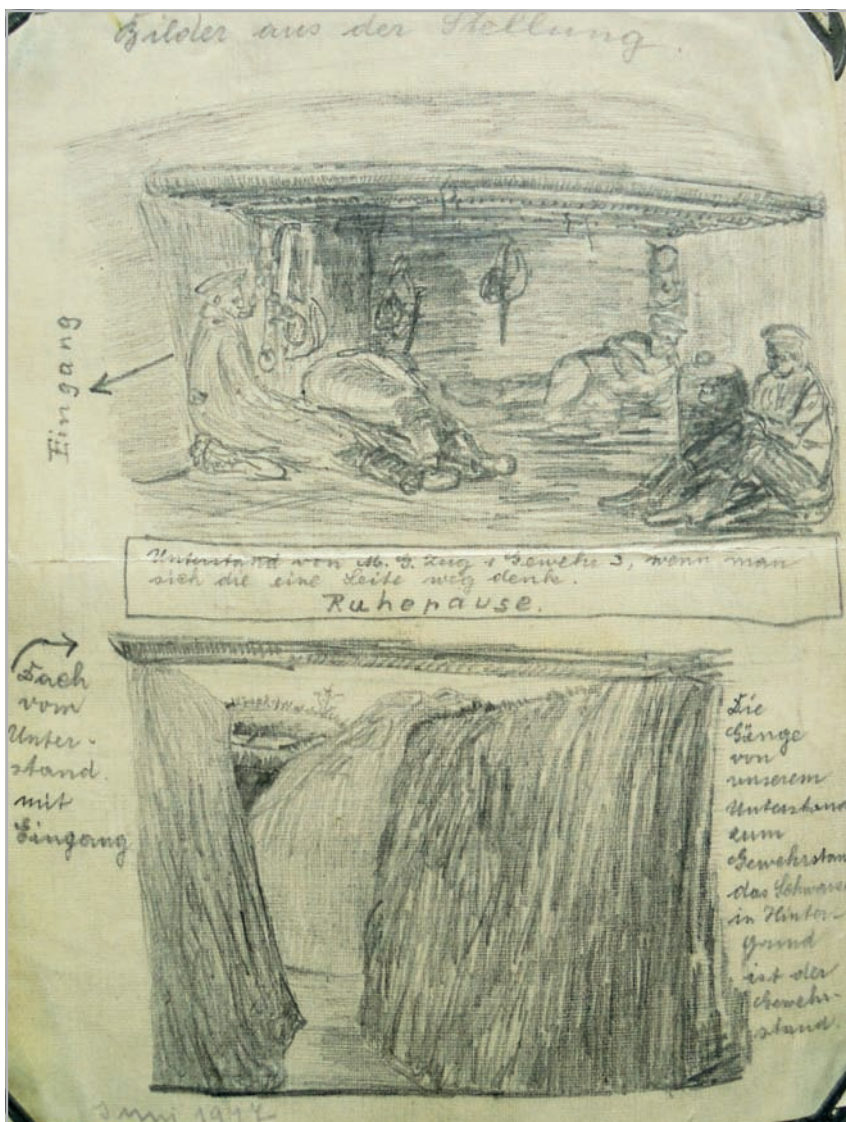 Bilder aus der Stellung.
Eingang
Unterstand von M. G. Zug 1 Gewehr 3, wenn man
sich die eine Seite weg denk.
Ruhepause.
Dach
vom
Unter-
stand.
mit
Eingang
Die
Gänge
von
unserem
Unterstand
zum
Gewehrstan
das Schwarze
in Hinter-
grund
ist der
Gewehr-
stand.
Juni 1917